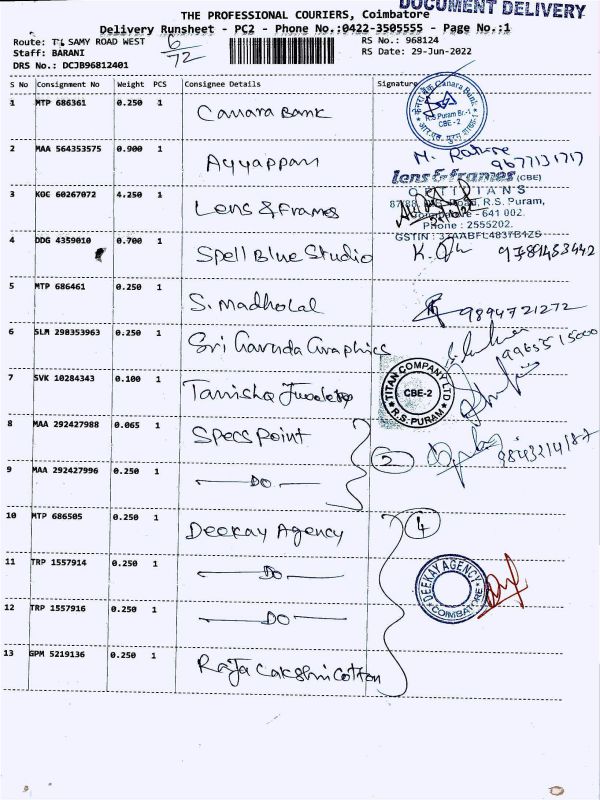 DOCUMENT DELIVERY
THE PROFESSIONAL COURIERS, Coimbatore
Delivery Runsheet - PC2 - Phone No.:0422-3505555 - Page No.:1
Route: T. SAMY ROAD WEST
6/72
RS No.: 968124
Staff: BARANI
RS Date: 29-Jun-2022
DRS No.: DCJB96812401
S No Consignment No Weight PCS Consignee Details Signature
1 MTP 686361 0.250 1 Canara Bank
केनरा बैंक Canara Bank
R.S Puram Br.-1
CBE - 2
2 MAA 564353575 0.900 1 Ayyappan
9677131717
3 KOC 60267072 4.250 1 Lens & Frames
lens & frames (CBE)
OPTICIANS
R.S. Puram,
Coimbatore - 641 002.
Phone : 2555202.
GSTIN : 33AABFL4837B1ZS
4 DDG 4359010 0.700 1 Spell Blue Studio
9789453442
5 MTP 686461 0.250 1 S. Madholal
9894721272
6 SLM 298353963 0.250 1 Sri Garuda Graphics
9965515000
7 SVK 10284343 0.100 1 Tanishq
TITAN COMPANY LTD
CBE-2
R.S. PURAM
8 MAA 292427988 0.065 1 Specs Point
2
9843214187
9 MAA 292427996 0.250 1 — DO —
10 MTP 686505 0.250 1 Deekay Agency
4
11 TRP 1557914 0.250 1 — DO —
DEEKAY AGENCY
COIMBATORE
12 TRP 1557916 0.250 1 — DO —
13 GPM 5219136 0.250 1 Raja Lakshmi Cotton